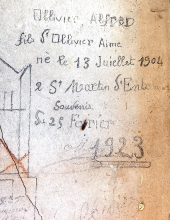 Ollivier Alfred
fils d'Ollivier Aime
né le 13 Juillet 1904
a St Martin d'Ent
Souvenir
du 25 Fevrier
1923